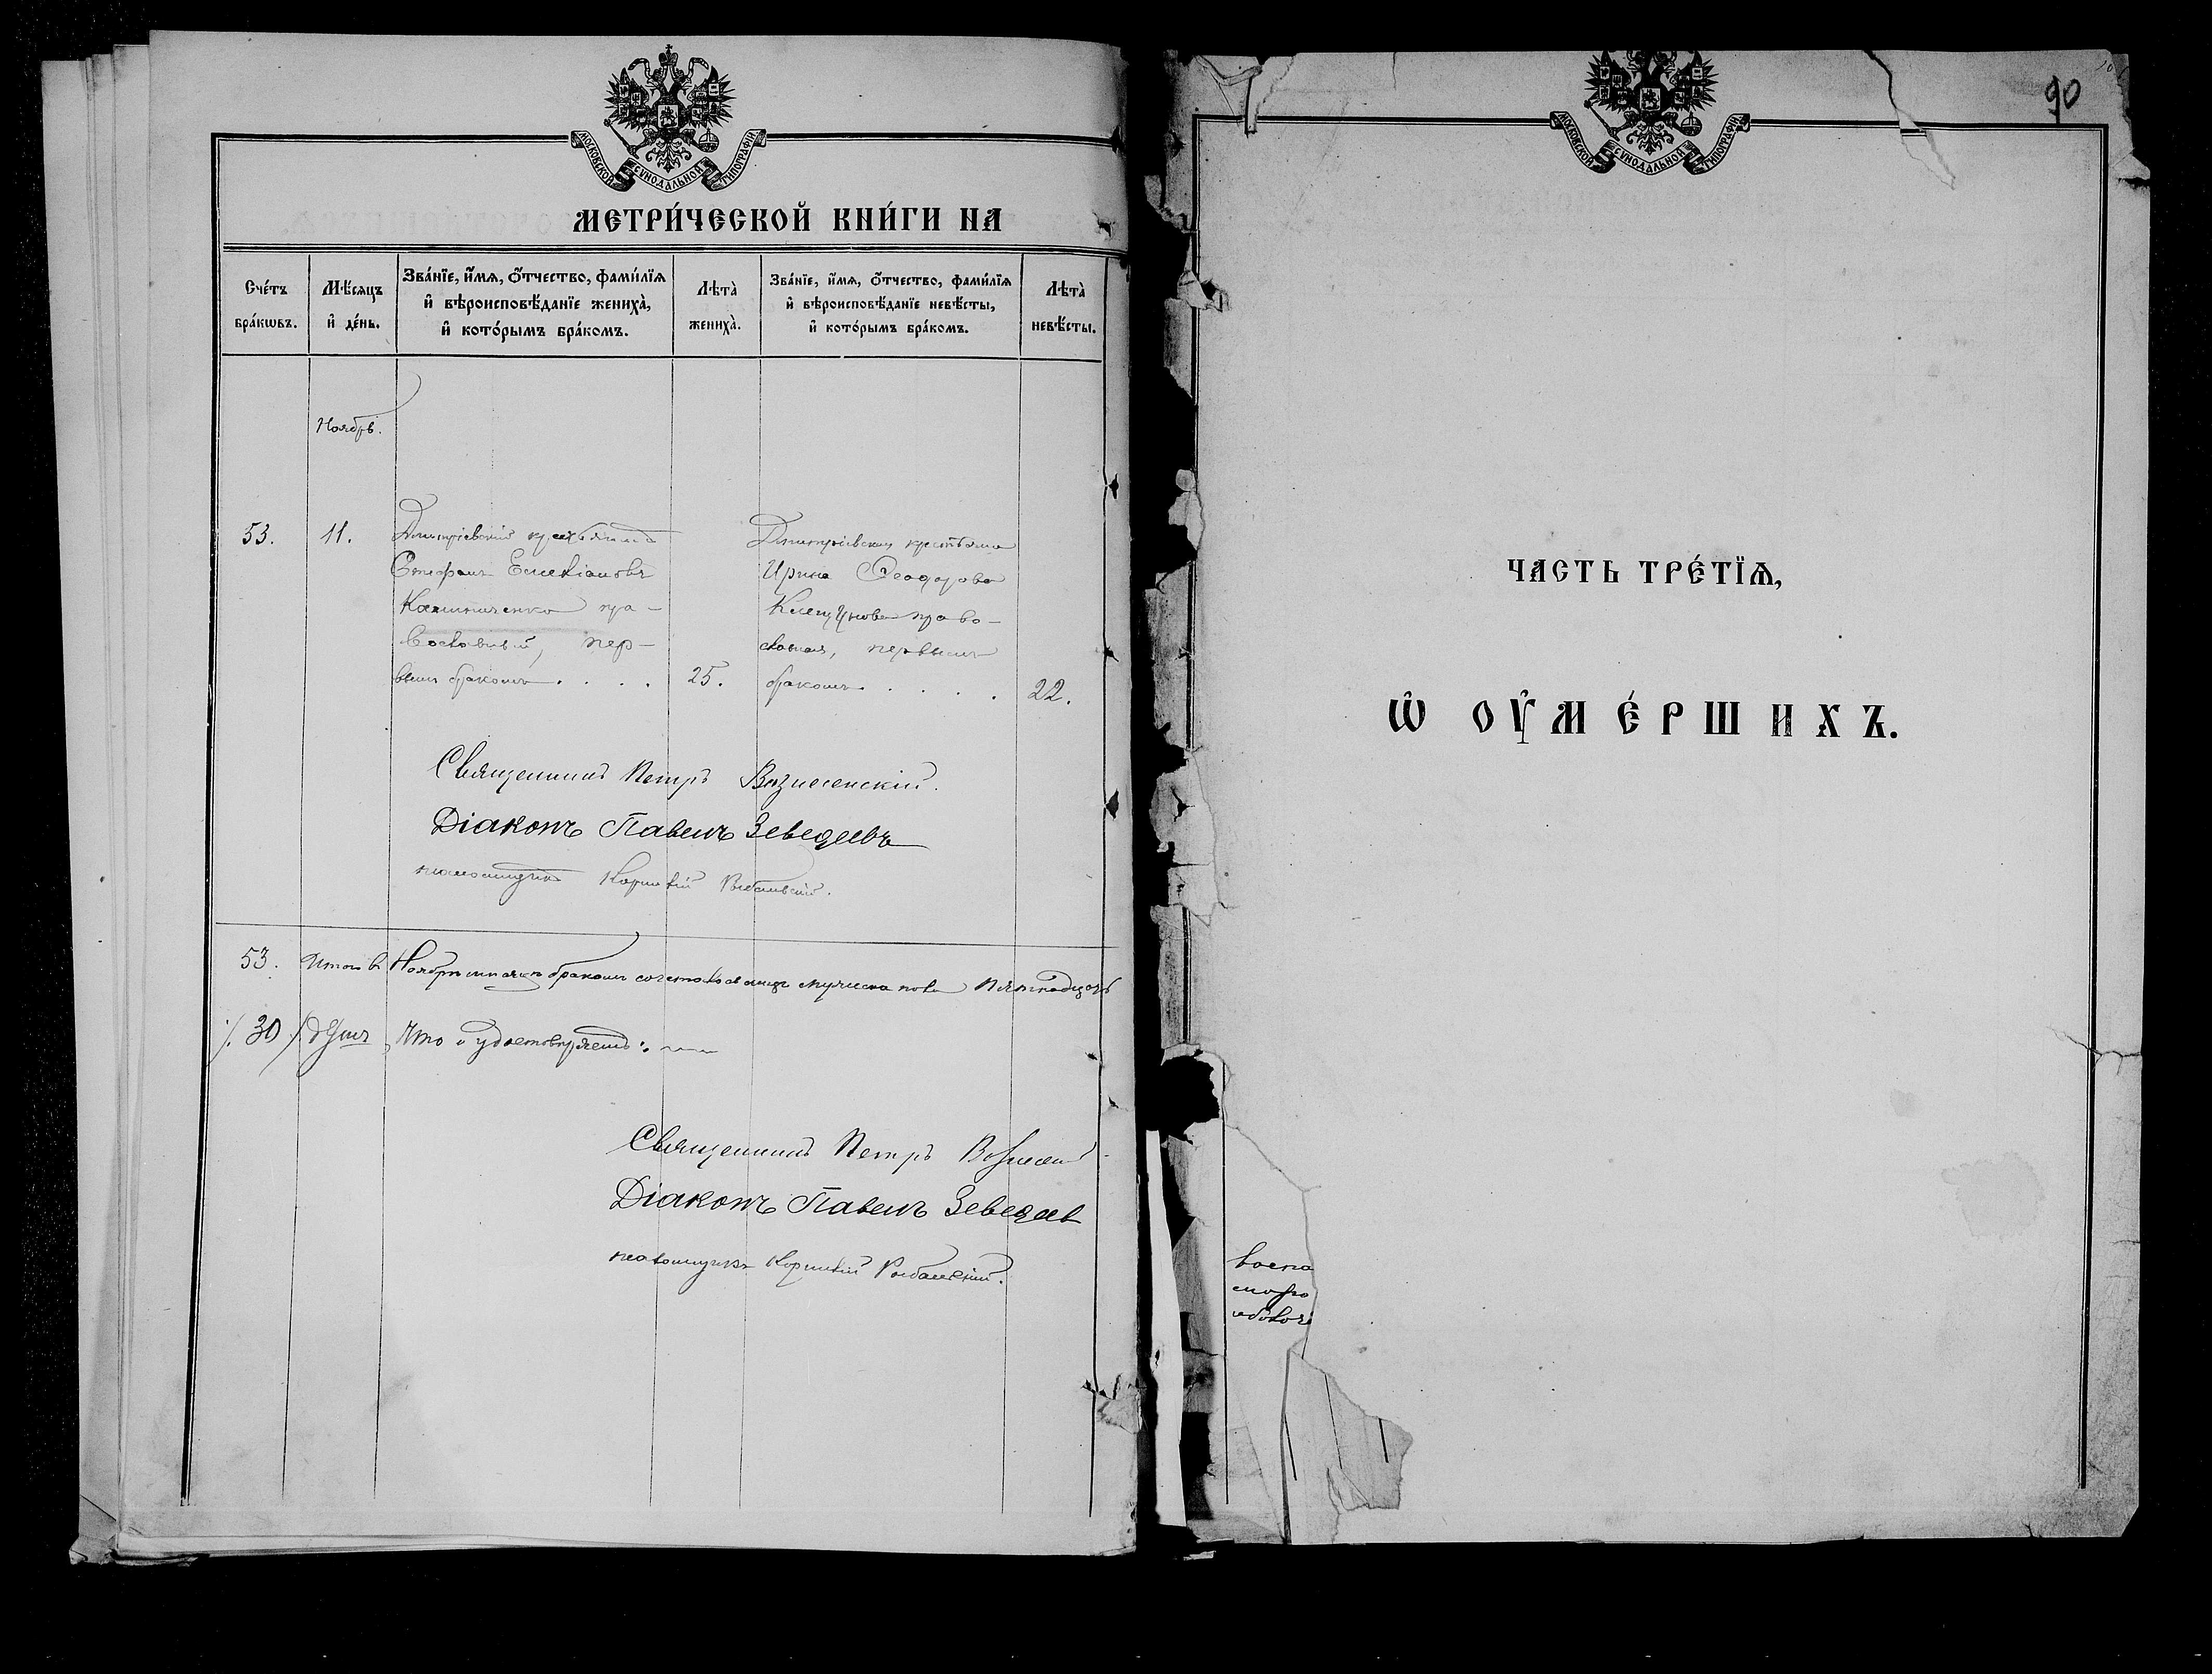 МОСКОВСКОЙ СѴНОДАЛЬНОЙ ТИПОГРАФІИ
МЕТРИ́ЧЕСКОЙ КНИ́ГИ НА
Сче́тъ бра́кѡвъ.
Мѣ́сяцъ и҆ де́нь.
Зва́нїе, и҆́мѧ, ѻ҆́тчество, фами́лїѧ и҆ вѣроисповѣ́данїе жениха̀, и҆ кото́рымъ бра́комъ.
Лѣта̀ жениха̀.
Зва́нїе, и҆́мѧ, ѻ҆́тчество, фами́лїѧ и҆ вѣроисповѣ́данїе невѣ́сты, и҆ кото́рымъ бра́комъ.
Лѣта̀ невѣ́сты.
Ноябрь.
53.
11.
Дмитріевскій крестьянинъ
Стефанъ Емеліановъ
Калиниченко пра-
вославный, пер-
вымъ бракомъ . . . .
25.
Дмитріевская крестьянка
Ирина Феодорова
право-
славная, первымъ
бракомъ . . . .
22.
Священникъ Петръ Вознесенскій.
Діаконъ Павелъ Зеведеевъ
псаломщикъ Корнилій
53.
Итого въ Ноябрѣ мѣсяцѣ бракомъ сочетавшихся мужеска пола Пятнадцать
/.30/.
душъ, Что и удостовѣряемъ:
Священникъ Петръ Вознесен
Діаконъ Павелъ Зеведеев
псаломщикъ Корнилій
90
МОСКОВСКОЙ СѴНОДАЛЬНОЙ ТИПОГРАФІИ
ЧАСТЬ ТРЕ́ТЇѦ,
Ѡ҆ ОУ҆МЕ́РШИХЪ.